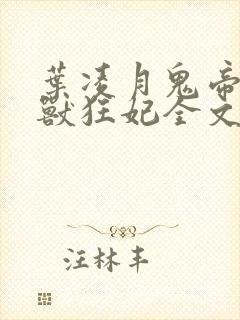 葉凌月鬼帝
獸狂妃全文
汪林丰